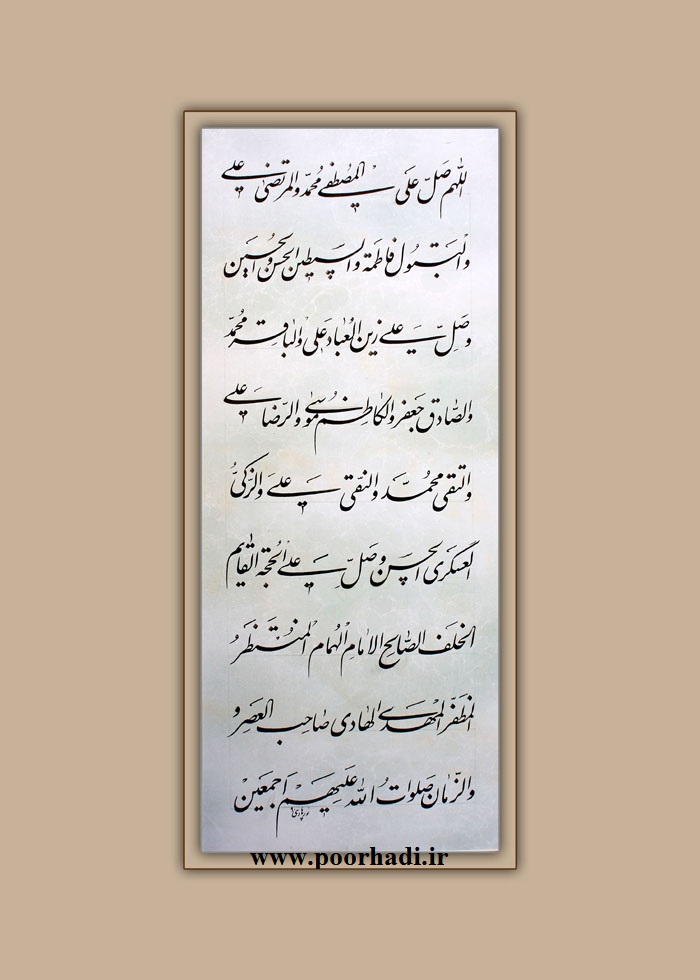 اللّهم صَلِّ عَلَی المصُطفی محمّد والمرتضیٰ علی
والبَتول فاطمَة والسبطین الحسن والحسین
وَصَلِّ علی زین العُبّاد عَلی والباقر محمّد
والصّادق جَعفر والکاظم موُسیٰ والرّضا علی
والتقی محمّد والنقّی علیَ والزّکیُّ
العسکری الحسن وصَلِّ علی الحجّة القایم
الخلَف الصّالح الامامِ الهُمام المنُتظَرُ
المظفّر المهدی الهادی صاحب العصرو
والزّمان صَلواتُ الله عَلیهم اَجمعَین
پورهادی
www.poorhadi.ir